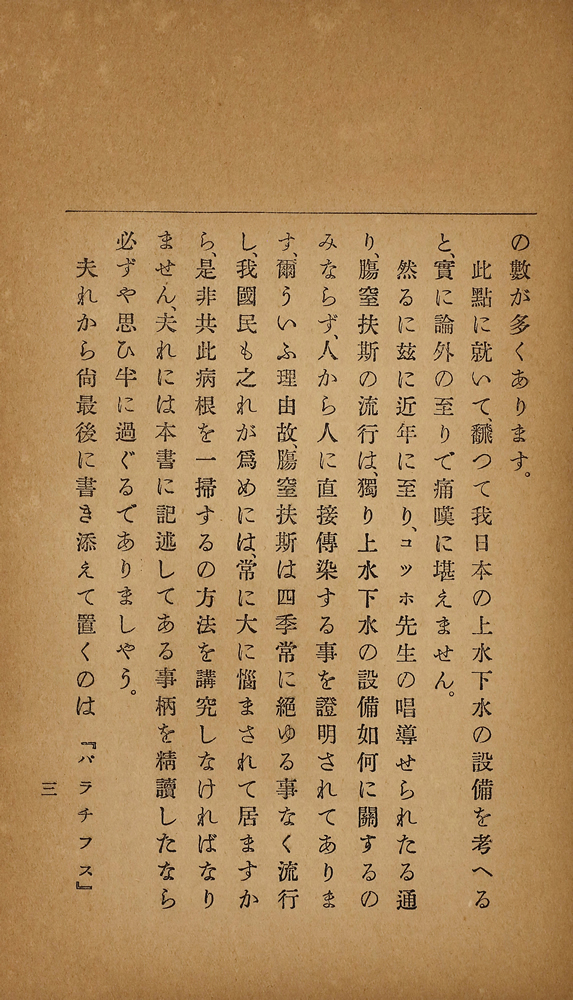 の數が多くあります。
此點に就いて、飜つて我日本の上水下水の設備を考へる
と、實に論外の至りで痛嘆に堪えません。
然るに玆に近年に至り、コッホ先生の唱導せられたる通
り、膓窒扶斯の流行は、獨り上水下水の設備如何に關するの
みならず、人から人に直接傳染する事を證明されてありま
す、爾ういふ理由故、膓窒扶斯は四季常に絕ゆる事なく流行
し、我國民も之れが爲めには、常に大に惱まされて居ますか
ら、是非共此病根を一掃するの方法を講究しなければなり
ません、夫れには本書に記述してある事柄を精讀したなら
必ずや思ひ半に過ぐるでありましやう。
夫れから尙最後に書き添えて置くのは『パラチフス』
三